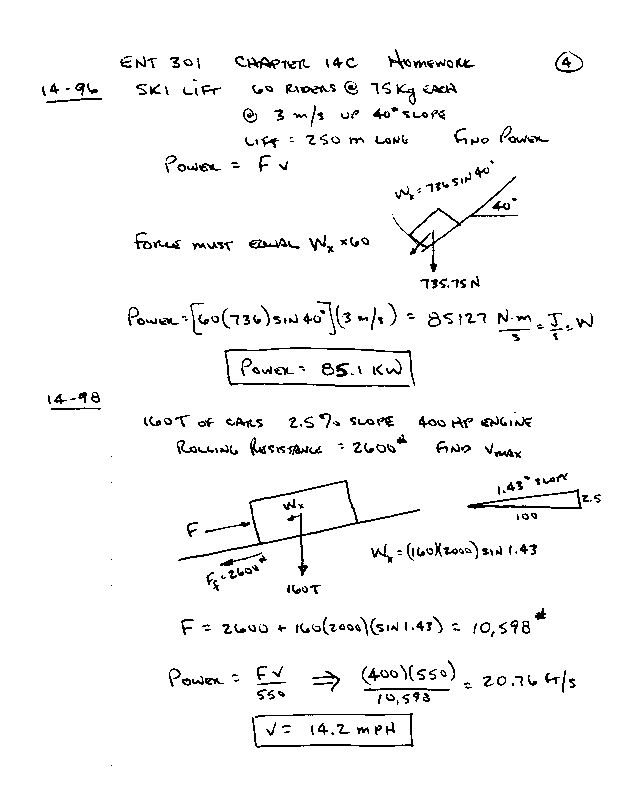 ENT 301 CHAPTER 14C HOMEWORK 4
14-96 SKI LIFT 60 RIDERS @ 75Kg EACH
@ 3 m/s UP 40° SLOPE
LIFT = 250 m LONG FIND POWER
POWER = F V
Wx = 736 SIN 40°
40°
FORCE MUST EQUAL Wx × 60
735.75 N
POWER = [60(736) SIN 40°](3 m/s) = 85127 N·m/s = J/s = W
POWER = 85.1 KW
14-98
160T OF CARS 2.5% SLOPE 400 HP ENGINE
ROLLING RESISTANCE = 2600# FIND VMAX
1.43° SLOPE
2.5
100
Wx
F
Wx = (160)(2000) SIN 1.43
Ff = 2600#
160T
F = 2600 + 160(2000)(SIN 1.43) = 10,598#
POWER = FV/550 ⇒ (400)(550)/10,598 = 20.76 FT/S
V = 14.2 MPH